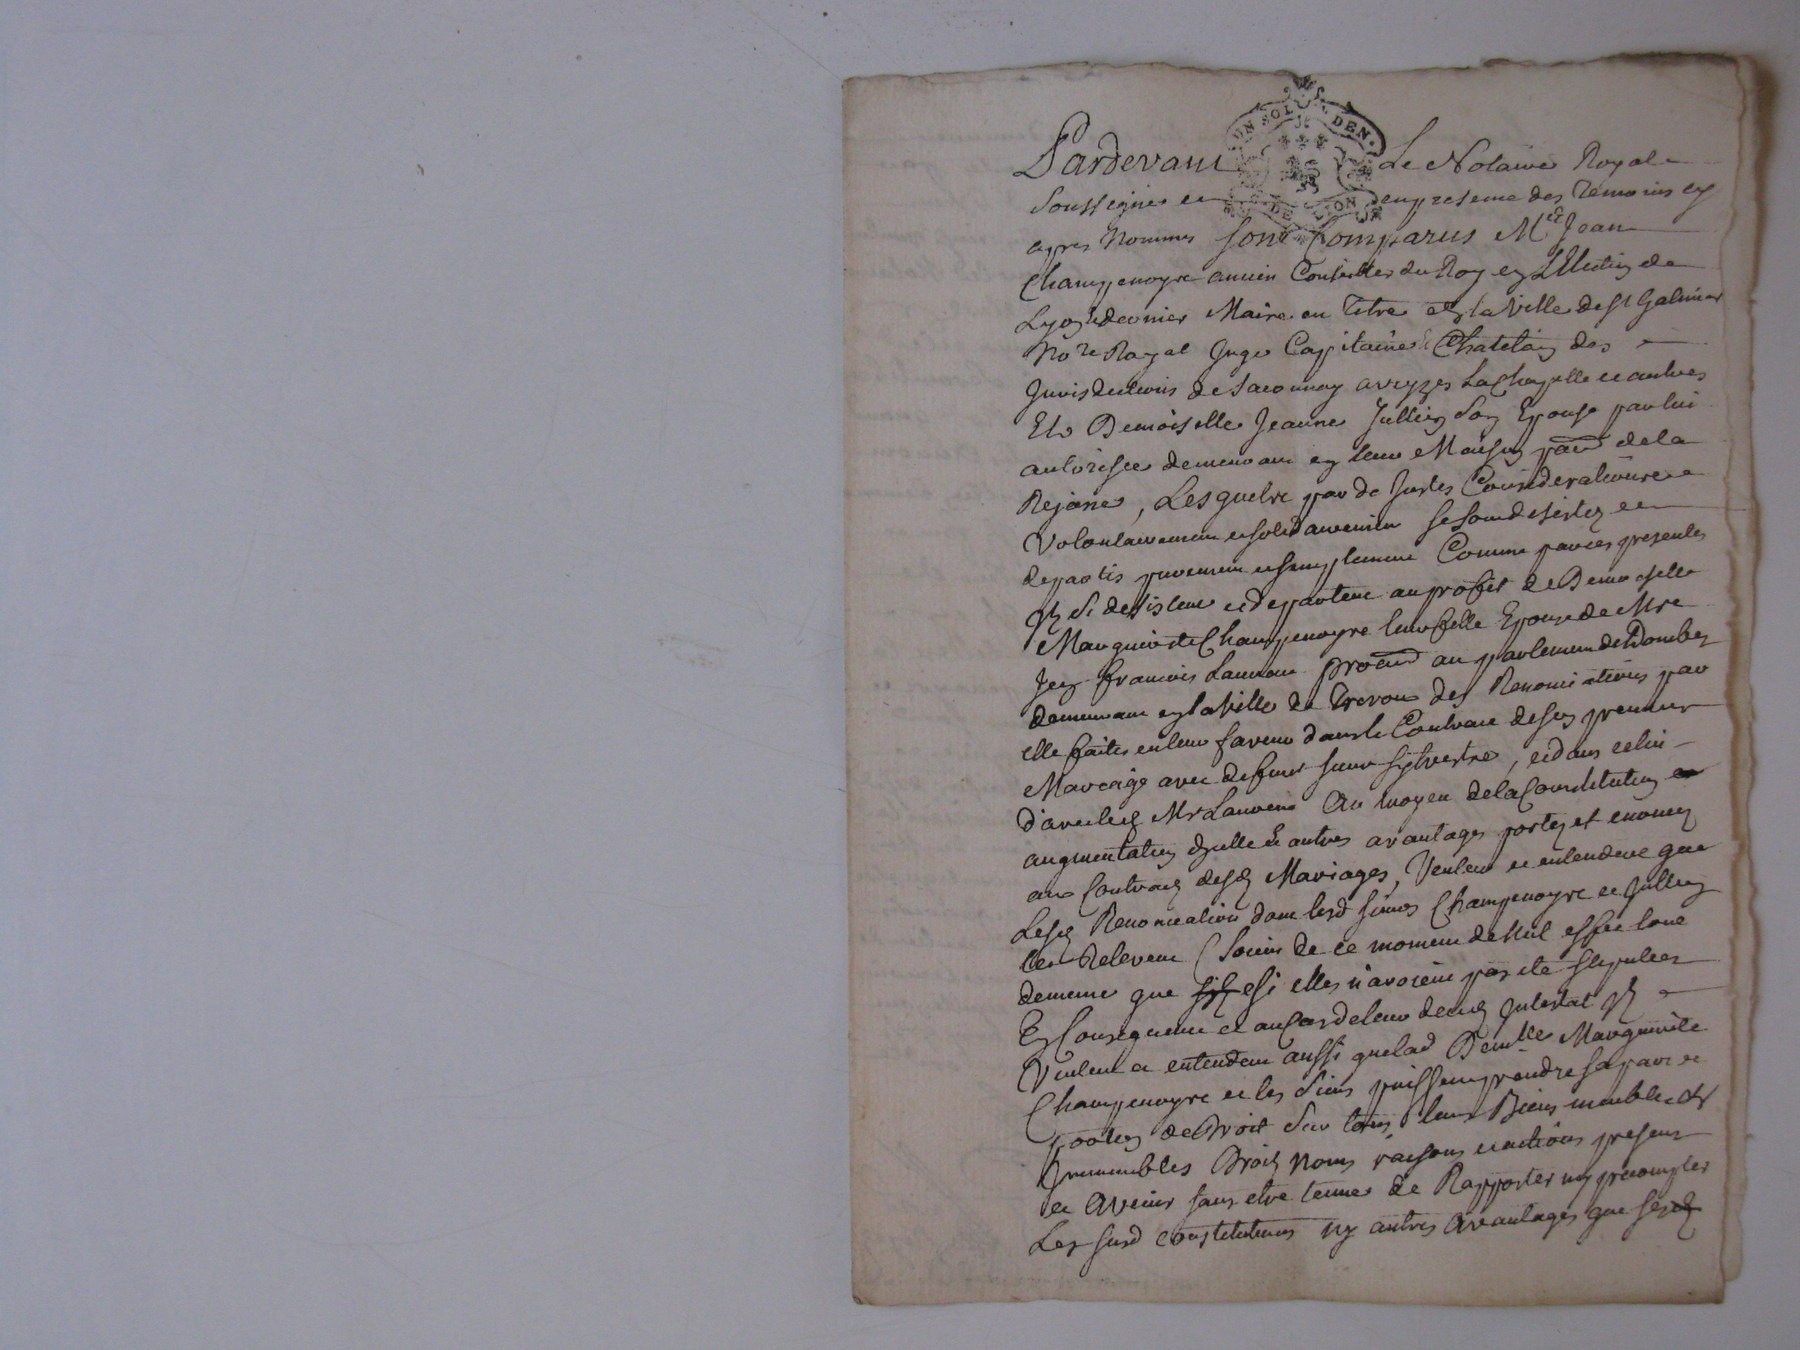 UN SOL DEN.
G. DE LION
Pardevant Le Notaire Royal
Soussigné et en presence des temoins cy
apres Nommes sont Comparus Mre Jean
Champenoyre ancien Conseiller du Roy en L'Election de
Lyon dernier Maire en titre de la Ville de St Galmier
Nore Royal Juge Capitaine Chatelain des
Jurisdictions de Saconnay aveyzes La Chapelle et autres
Et Demoiselle Jeanne Jullien son Epouse par lui
autorisée demeurant en leur Maison parr de la
Rejane, Lesquels par de Justes Considerations
Volontairement et solidairement se sont desistez et
departis purement et simplement Comme par ces presentes
ils se desistent et departent au profit de Demoiselle
Marguerite Champenoyre leur fille Epouse de Mre
Jean francois Laurent procur au parlement de Dombes
demeurant en la Ville de Trevoux des Renonciations par
elle faites en leur faveur dans le Contract de son premier
Mariage avec defunt sieur Sylvestre, et dans celui
d'avec led Mr Laurent Au moyen de la Constitution
augmentation d'icelle et autres avantages portez et enoncez
aux Contracts desd Mariages, Veulent et entendent que
Lesd Renonciations dont lesd sieurs Champenoyre et Jullien
les Relevent soient de ce moment de Nul effet tout
de meme que si elles n'avoient pas eté stipulées
En Consequence et au Cas de leur deces Intestat ils
Veulent et entendent aussi que lad Demlle Marguerite
Champenoyre et les siens puissent prendre sa part et
portion de Droit sur tous leurs Biens meubles et
Immeubles Droits Noms raisons et actions presents
et Avenir sans etre tenue de Rapporter ny precompter
Les susd constitutions ny autres avantages que ses